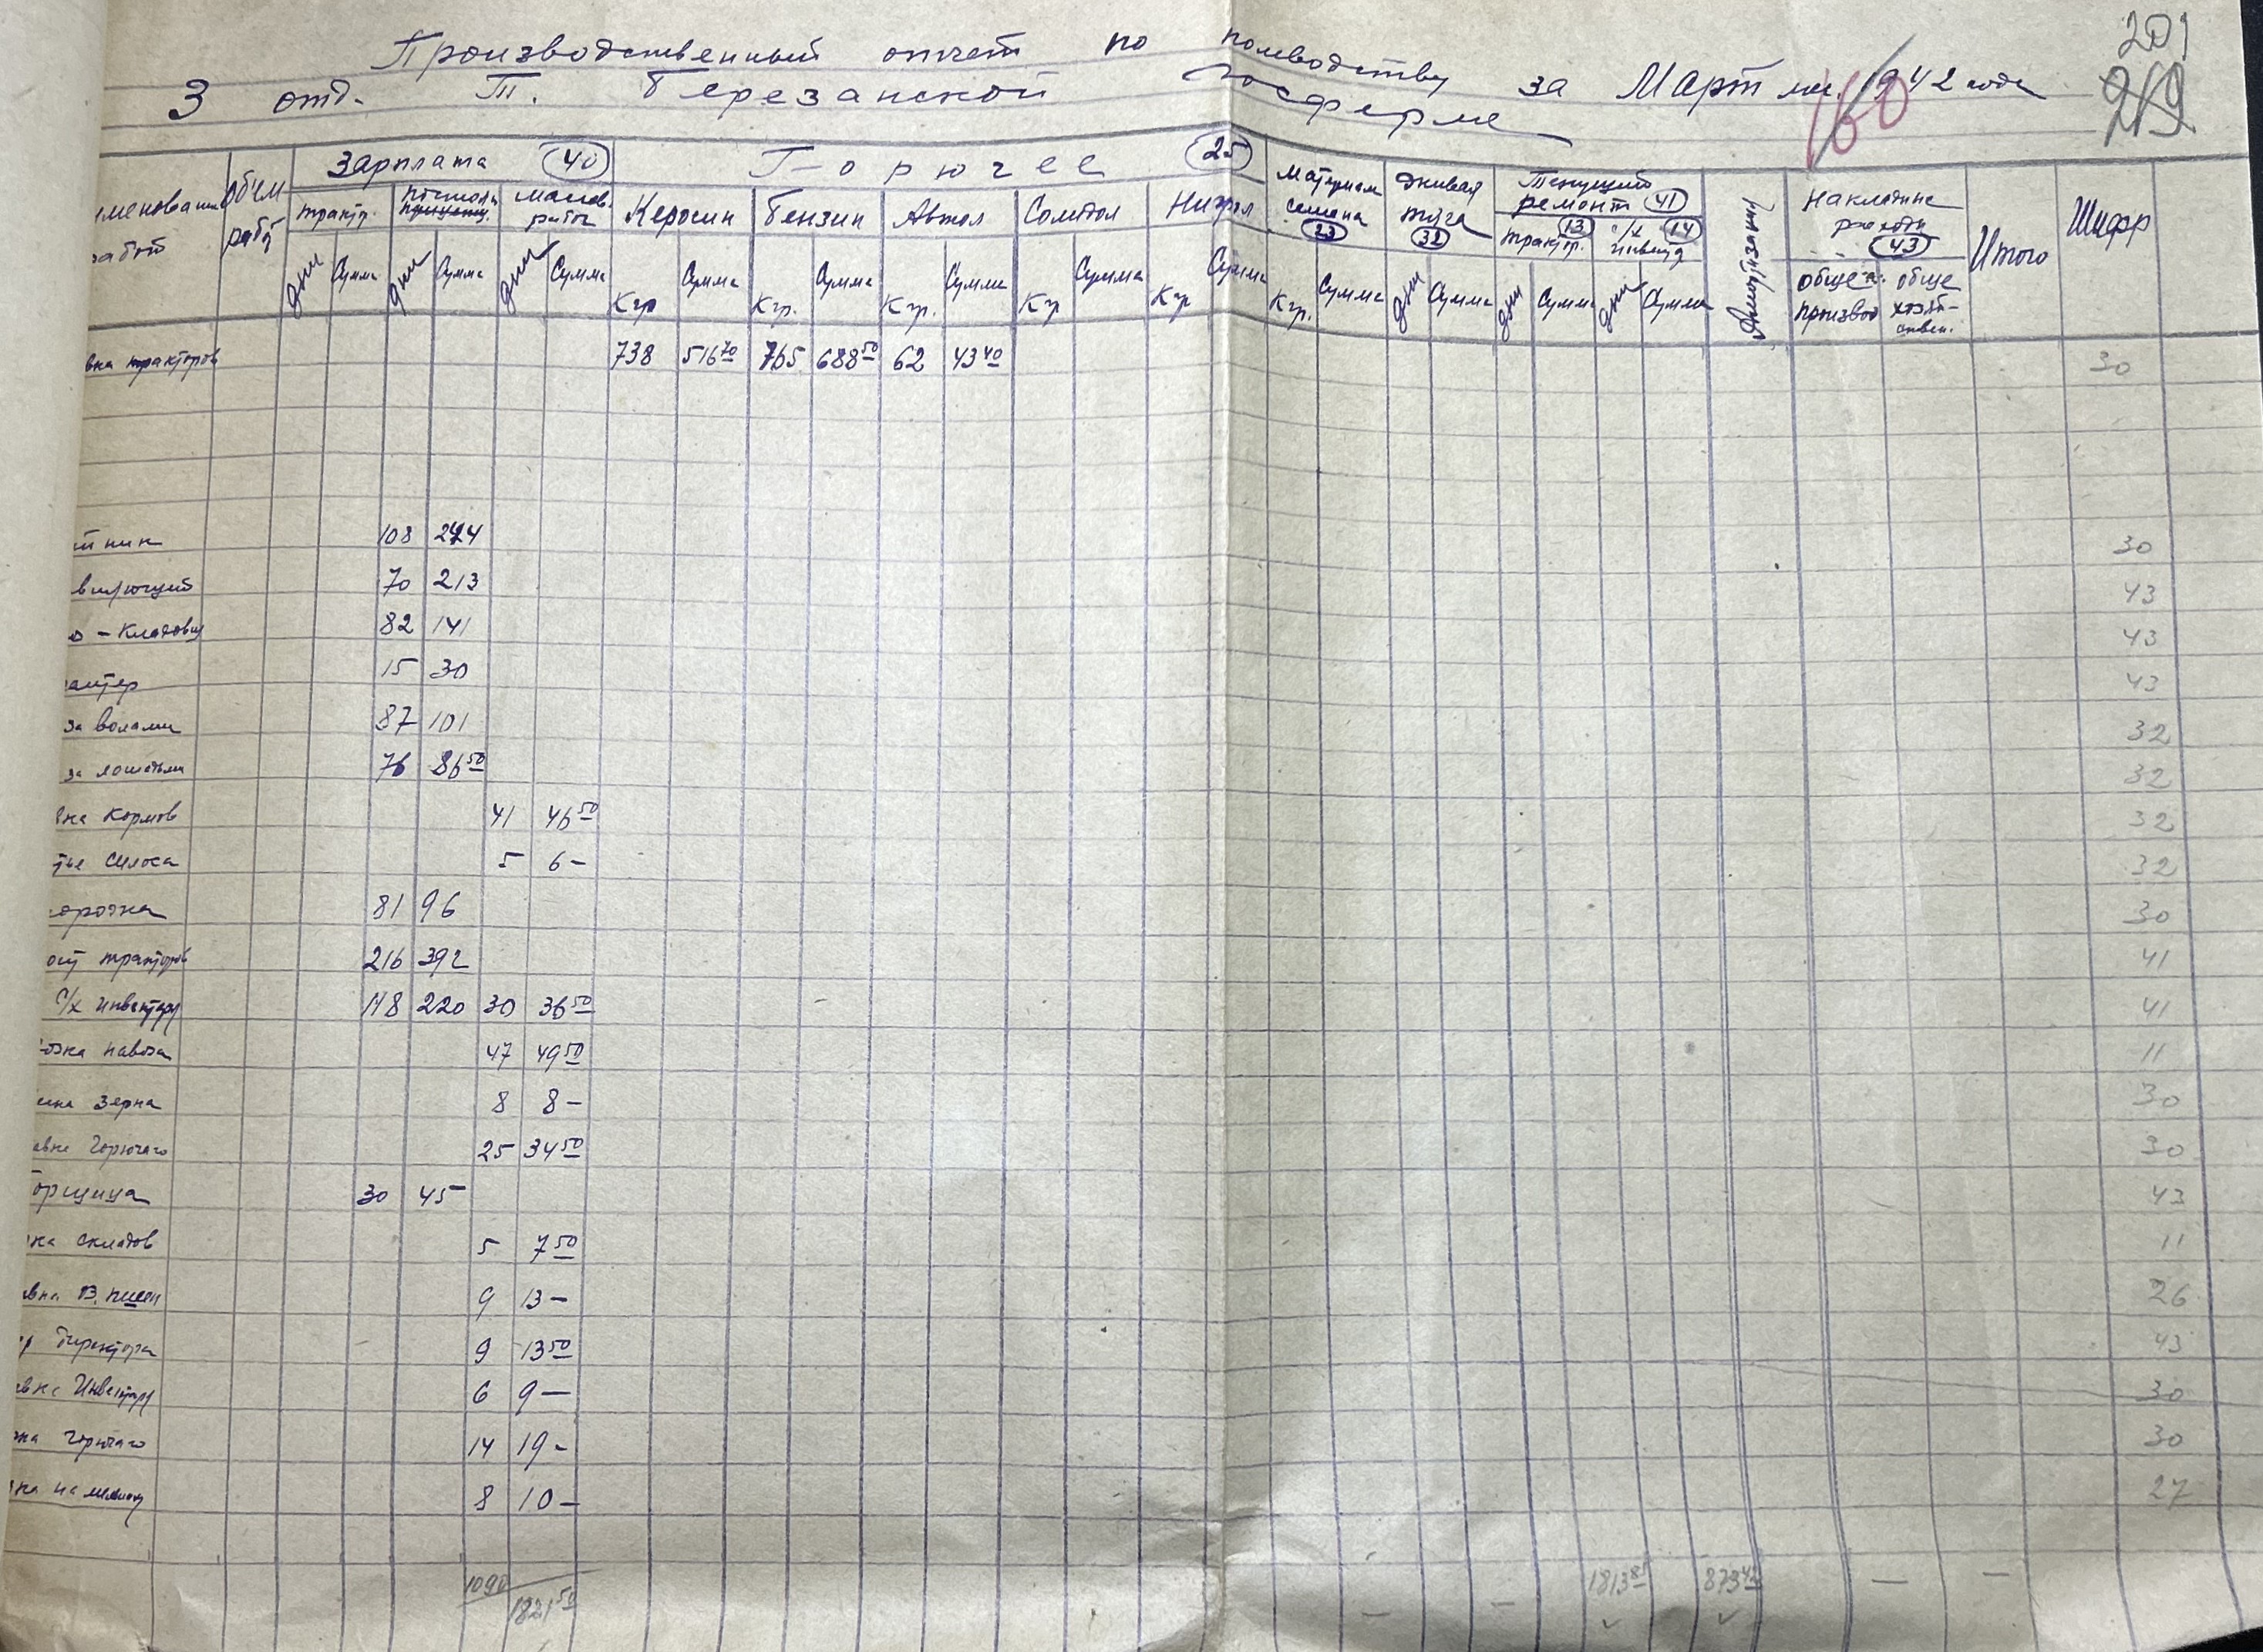 201
219
160
Производственный отчет по полеводству за Март м-ц. 1942 года
3 отд. Т. Березанской госферме
именование работ
Объем работ
Зарплата 40
Горючее 25
Материал семена 23
Живая тяга 32
Текущий ремонт 41
Амортизация
Накладные расходы 43
Итого
Шифр
тракт.
постоян. прицепщ.
массов. работ
Керосин
Бензин
Автол
Солидол
Нигрол
трактор. 13
с/х инвент. 14
общеп. производ
общехозяйствен.
дни Сумма дни Сумма дни Сумма Кгр Сумма Кгр. Сумма Кгр. Сумма Кгр Сумма Кгр Сумма Кгр. Сумма дни Сумма дни Сумма дни Сумма
вка тракторов 738 516 70 765 688 50 62 43 40 30
тник 108 274 30
вляющий 70 213 43
о-Кладовщ 82 141 43
алтер 15 30 43
за волами 87 101 32
за лошадьми 76 86 50 32
вка Кормов 41 46 50 32
тье силоса 5 6- 32
орожка 81 96 30
онт тракторов 216 392 41
с/х инвентаря 118 220 30 36 50 41
возка навоза 47 49 50 11
зерна 8 8- 30
авка горючаго 25 34 50 30
орщица 30 45 43
ка складов 5 7 50 11
авка В. пшен 9 13- 26
р директора 9 13 50 43
авка Инвентаря 6 9- 30
ка горючаго 14 19- 30
ка на мельницу 8 10- 27
1090 1821 50 - - 1813 85 873 42 - -